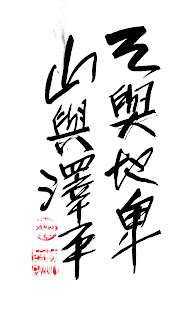 天與地卑
山與澤平